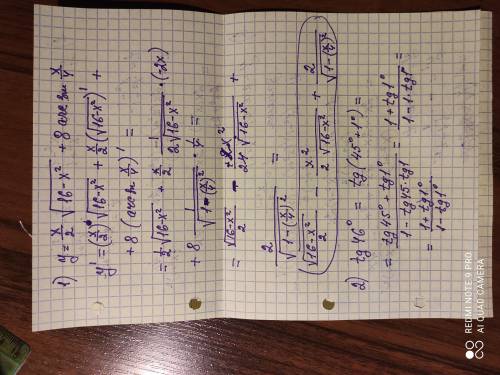 1) y = x/2 √(16-x²) + 8 arcsin x/4
y' = (x/2)' √(16-x²) + x/2 (√(16-x²))' +
+ 8 (arcsin x/4)' =
= 1/2 √(16-x²) + x/2 · 1/(2√(16-x²)) · (-2x)
+ 8 1/√(1-(x/4)²) · 1/4 =
= √(16-x²)/2 - x²/(2√(16-x²)) +
2/√(1-(x/4)²) =
√(16-x²)/2 - x²/(2√(16-x²)) + 2/√(1-(x/4)²)
2) tg 46° = tg(45°+1°) =
= (tg45° + tg1°)/(1 - tg45·tg1) = (1+tg1°)/(1-1·tg1°) =
= (1+tg1°)/(1-tg1°)
REDMI NOTE 9 PRO
AI QUAD CAMERA